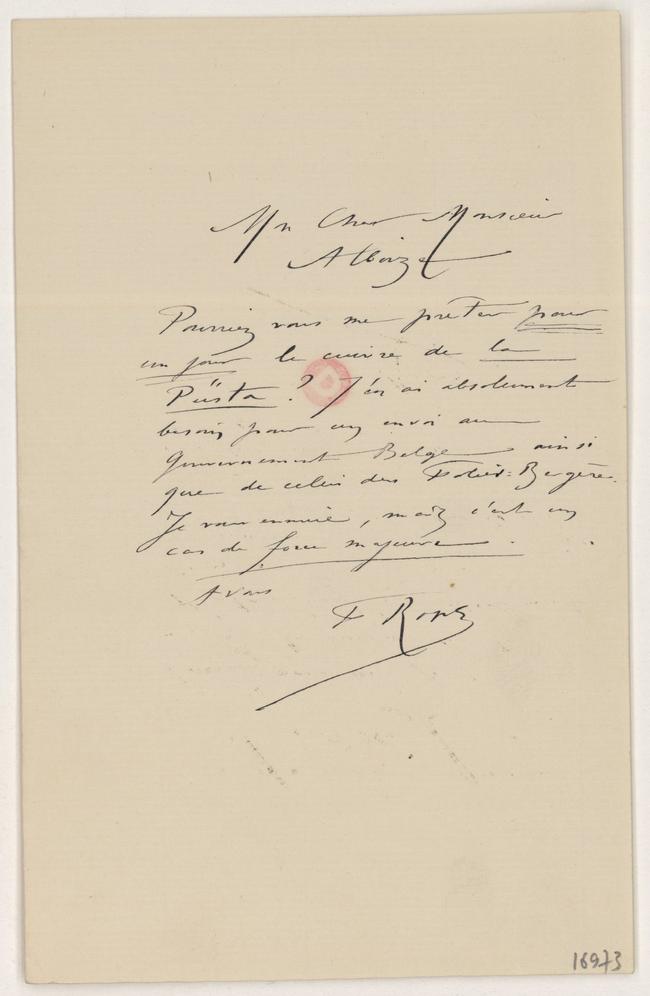 Mon Cher Monsieur
Alboize
Pourriez vous me preter pour
un jour le cuivre de la
Püsta ? J'en ai absolument
besoin pour un envoi au
Gouvernement Belge ainsi
que de celui des Folies-Bergère.
Je vous ennuie, mais c'est un
cas de force majeure.
A vous
F Rops
16973